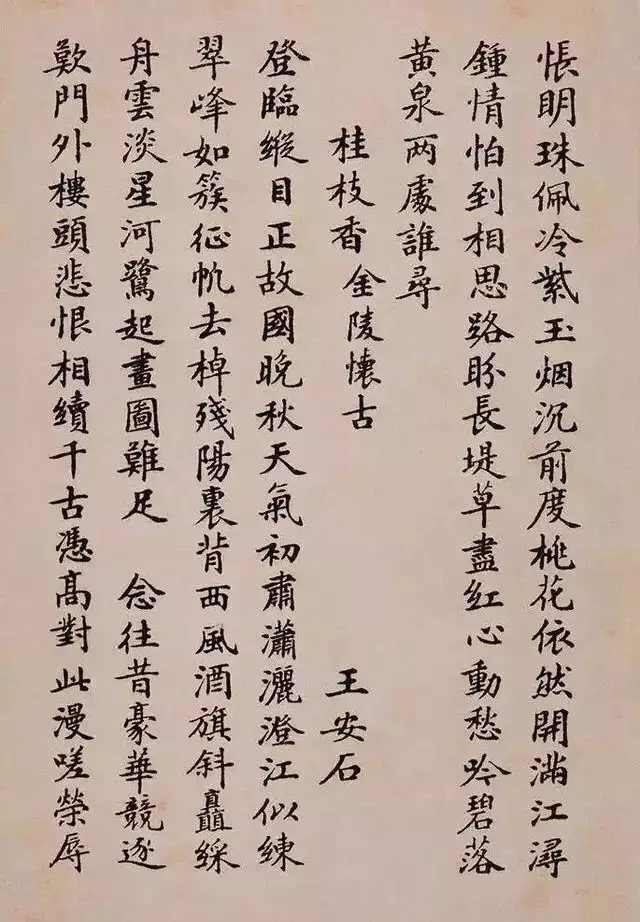 悵明珠佩冷紫玉烟沉前度桃花依然開滿江潯
鍾情怕到相思路盼長堤草盡紅心動愁吟碧落
黃泉两處誰尋
桂枝香金陵懷古 王安石
登臨縱目正故國晚秋天氣初肅瀟灑澄江似練
翠峰如簇征帆去棹殘陽裏背西風酒旗斜矗綵
舟雲淡星河鷺起畫圖難足 念往昔豪華競逐
歎門外樓頭悲恨相續千古憑高對此漫嗟榮辱